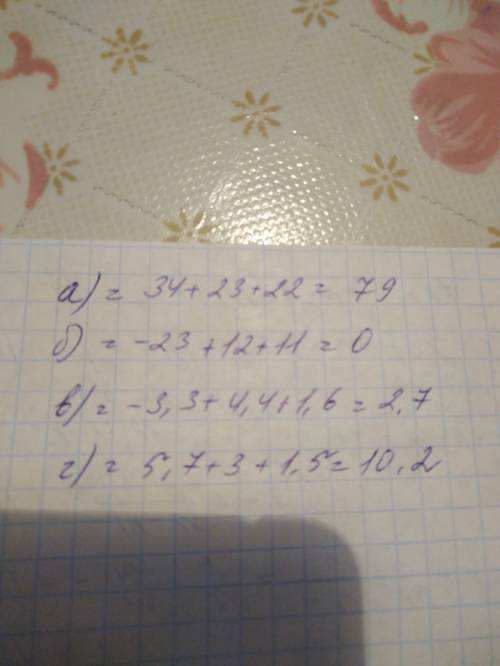 а) = 34+23+22 = 79
б) = -23 +12+11 = 0
в) = -3,3+4,4+1,6 = 2,7
г) = 5,7+3+1,5=10,2